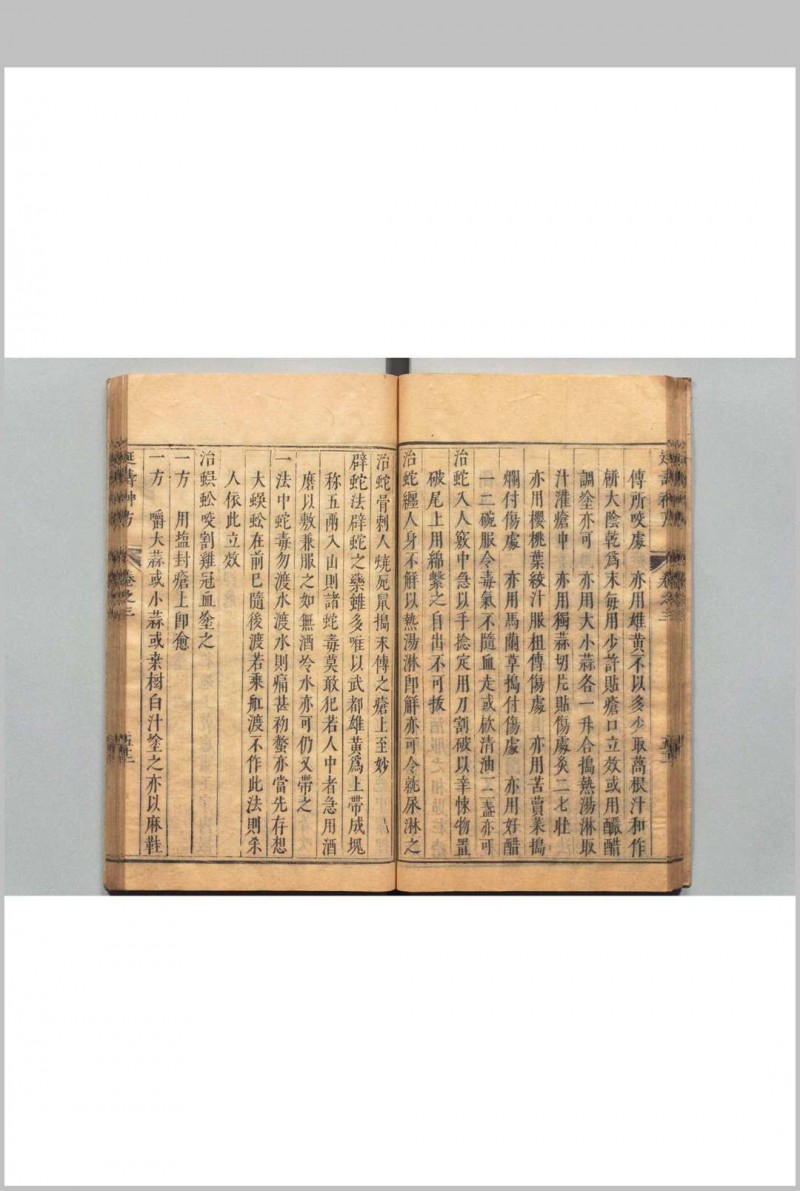 傅所咬處　亦用雄黃不以多少取萵根汁和作
餅大陰乾爲末每用少許貼瘡口立效或用釅醋
調塗亦可　亦用大小蒜各一升合搗熱湯淋取
汁灌瘡中　亦用獨蒜切片貼傷處灸二七壯
亦用櫻桃葉絞汁服柤傅傷處　亦用苦蕒菜搗
爛付傷處　亦用馬蘭草搗付傷處　亦用好醋
一二碗服令毒氣不隨血走或飲清油一二盞亦可
治蛇入人竅中急以手捻定用刀割破以辛悚物置
破尾上用綿繫之自出不可拔
治蛇纏人身不解以熱湯淋即解亦可令就尿淋之
治蛇骨刺人燒死鼠搗末傅之瘡上至妙
辟蛇法辟蛇之藥雖多唯以武都雄黃爲上帶成塊
称五兩入山則諸蛇毒莫敢犯若人中者急用酒
磨以敷兼服之如無酒冷水亦可仍又帶之
一法中蛇毒勿渡水渡水則痛甚初螫亦當先存想
大蜈蚣在前已隨後渡若乘舡渡不作此法則杀
人依此立效
治蜈蚣咬割雞冠血塗之
一方　用塩封瘡上即愈
一方　嚼大蒜或小蒜或桒樹白汁塗之亦以麻鞋
延壽神方　卷之三